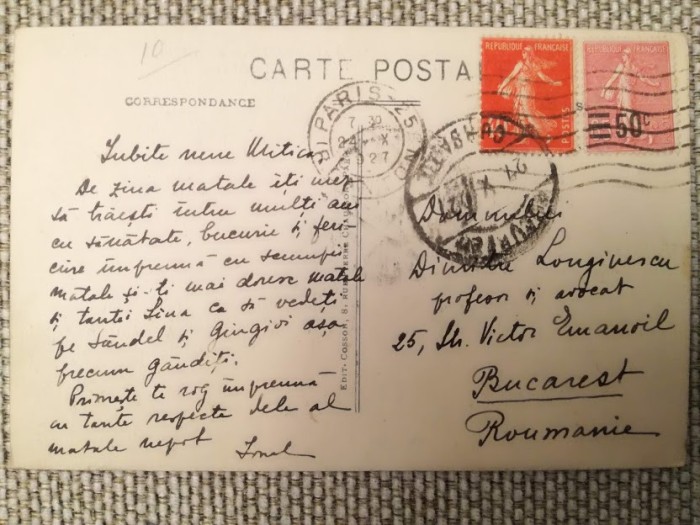 10
CARTE POSTA
CORRESPONDANCE
REPUBLIQUE FRANÇAISE
POSTES
REPUBLIQUE FRANÇAISE
50c
PARIS 25
7 30
24 X
927
Iubite nene Mitica
De ziua matale îți urez
să trăești întru mulți ani
cu sănătate, bucurie și feri-
cire împreună cu scumpii
matale și-ți mai doresc matale
și tantei Lina ca să vedeți
pe Săndel și Gingivi așa
precum gândiți.
Primește te rog împreună
cu tante respecte dela al
matale nepot Ionel
EDIT-COSSON, 8, RUE
Domnului
Dimitrie Longinescu
profesor și avocat
25, Str. Victor Emanoil
Bucarest
Roumanie